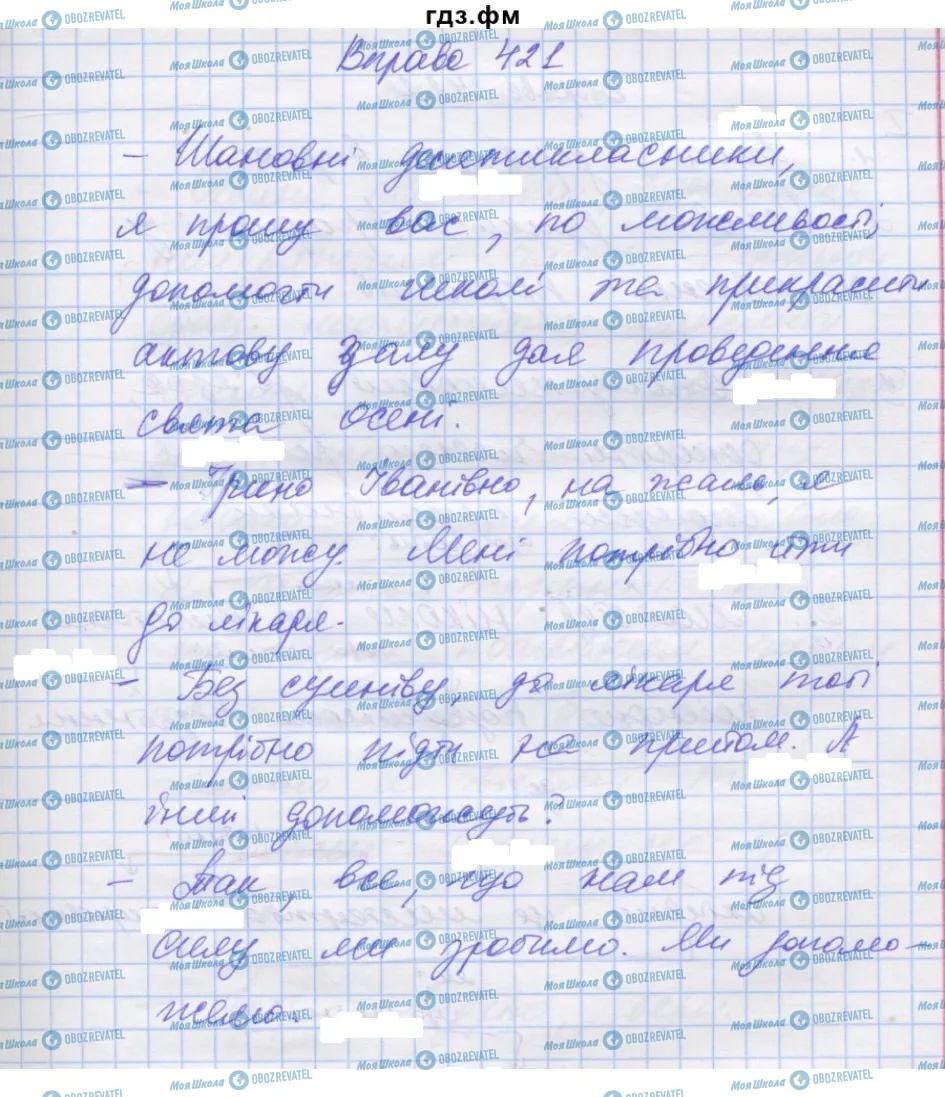 гдз.фм
Вправа 421
- Шановні десятикласники,
я прошу вас, по можливості,
допомогти школі та прикрасити
актову залу для проведення
свята осені.
- Ірино Іванівно, на жаль, я
не можу. Мені потрібно йти
до лікаря.
- Без сумніву, до лікаря тобі
потрібно піти на прийом. А
інші допоможуть?
- Так, все, що нам під
силу ми зробимо. Ми допомо-
жемо.
МояШкола OBOZREVATEL